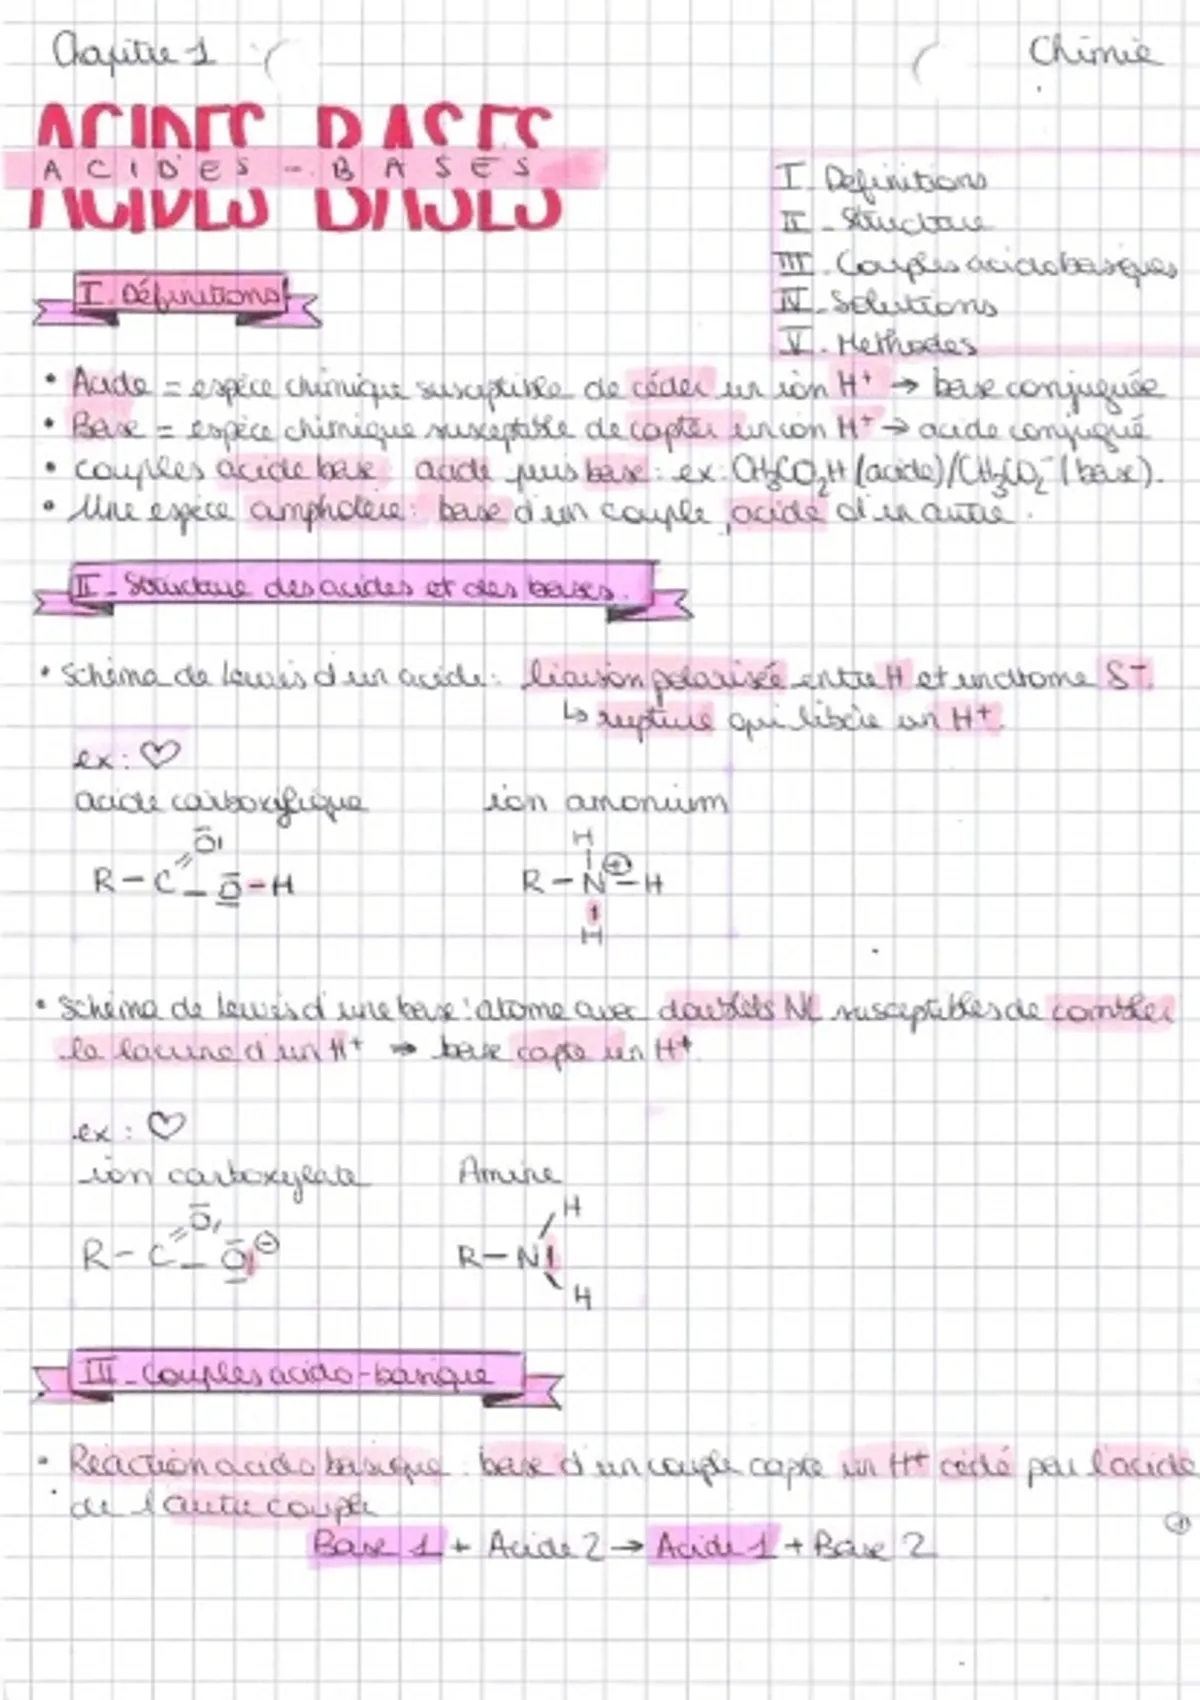 Chapitre 1
Chimie
ACIDES BASES
ACIDES - BASES
I. Definitions
II - Structure
III. Couples acidobasiques
IV - Solutions
V. Methodes
I. Définitions
• Acide = espèce chimique susceptible de céder un ion H⁺ → base conjuguée
• Base = espèce chimique susceptible de capter un ion H⁺ → acide conjugué
• couples acide base : acide puis base : ex : CH₃CO₂H (acide)/CH₃CO₂⁻ (base).
• Une espèce amphotère : base d'un couple, acide d'un autre.
II - Structure des acides et des bases.
• Schéma de Lewis d'un acide : liaison polarisée entre H et un atome δ⁻.
↳ rupture qui libère un H⁺.
ex : ♡
acide carboxylique ion amonium
O
R - C - O - H
H
R - N⊕ - H
H
• Schéma de Lewis d'une base : atome avec doublets NL susceptibles de combler
la lacune d'un H⁺ → base capte un H⁺.
ex : ♡
ion carboxylate Amine
O
R - C - O⊖
H
R - N
H
III - Couples acido-basique
• Réaction acido basique : base d'un couple capte un H⁺ cédé par l'acide
de l'autre couple
Base 1 + Acide 2 → Acide 1 + Base 2